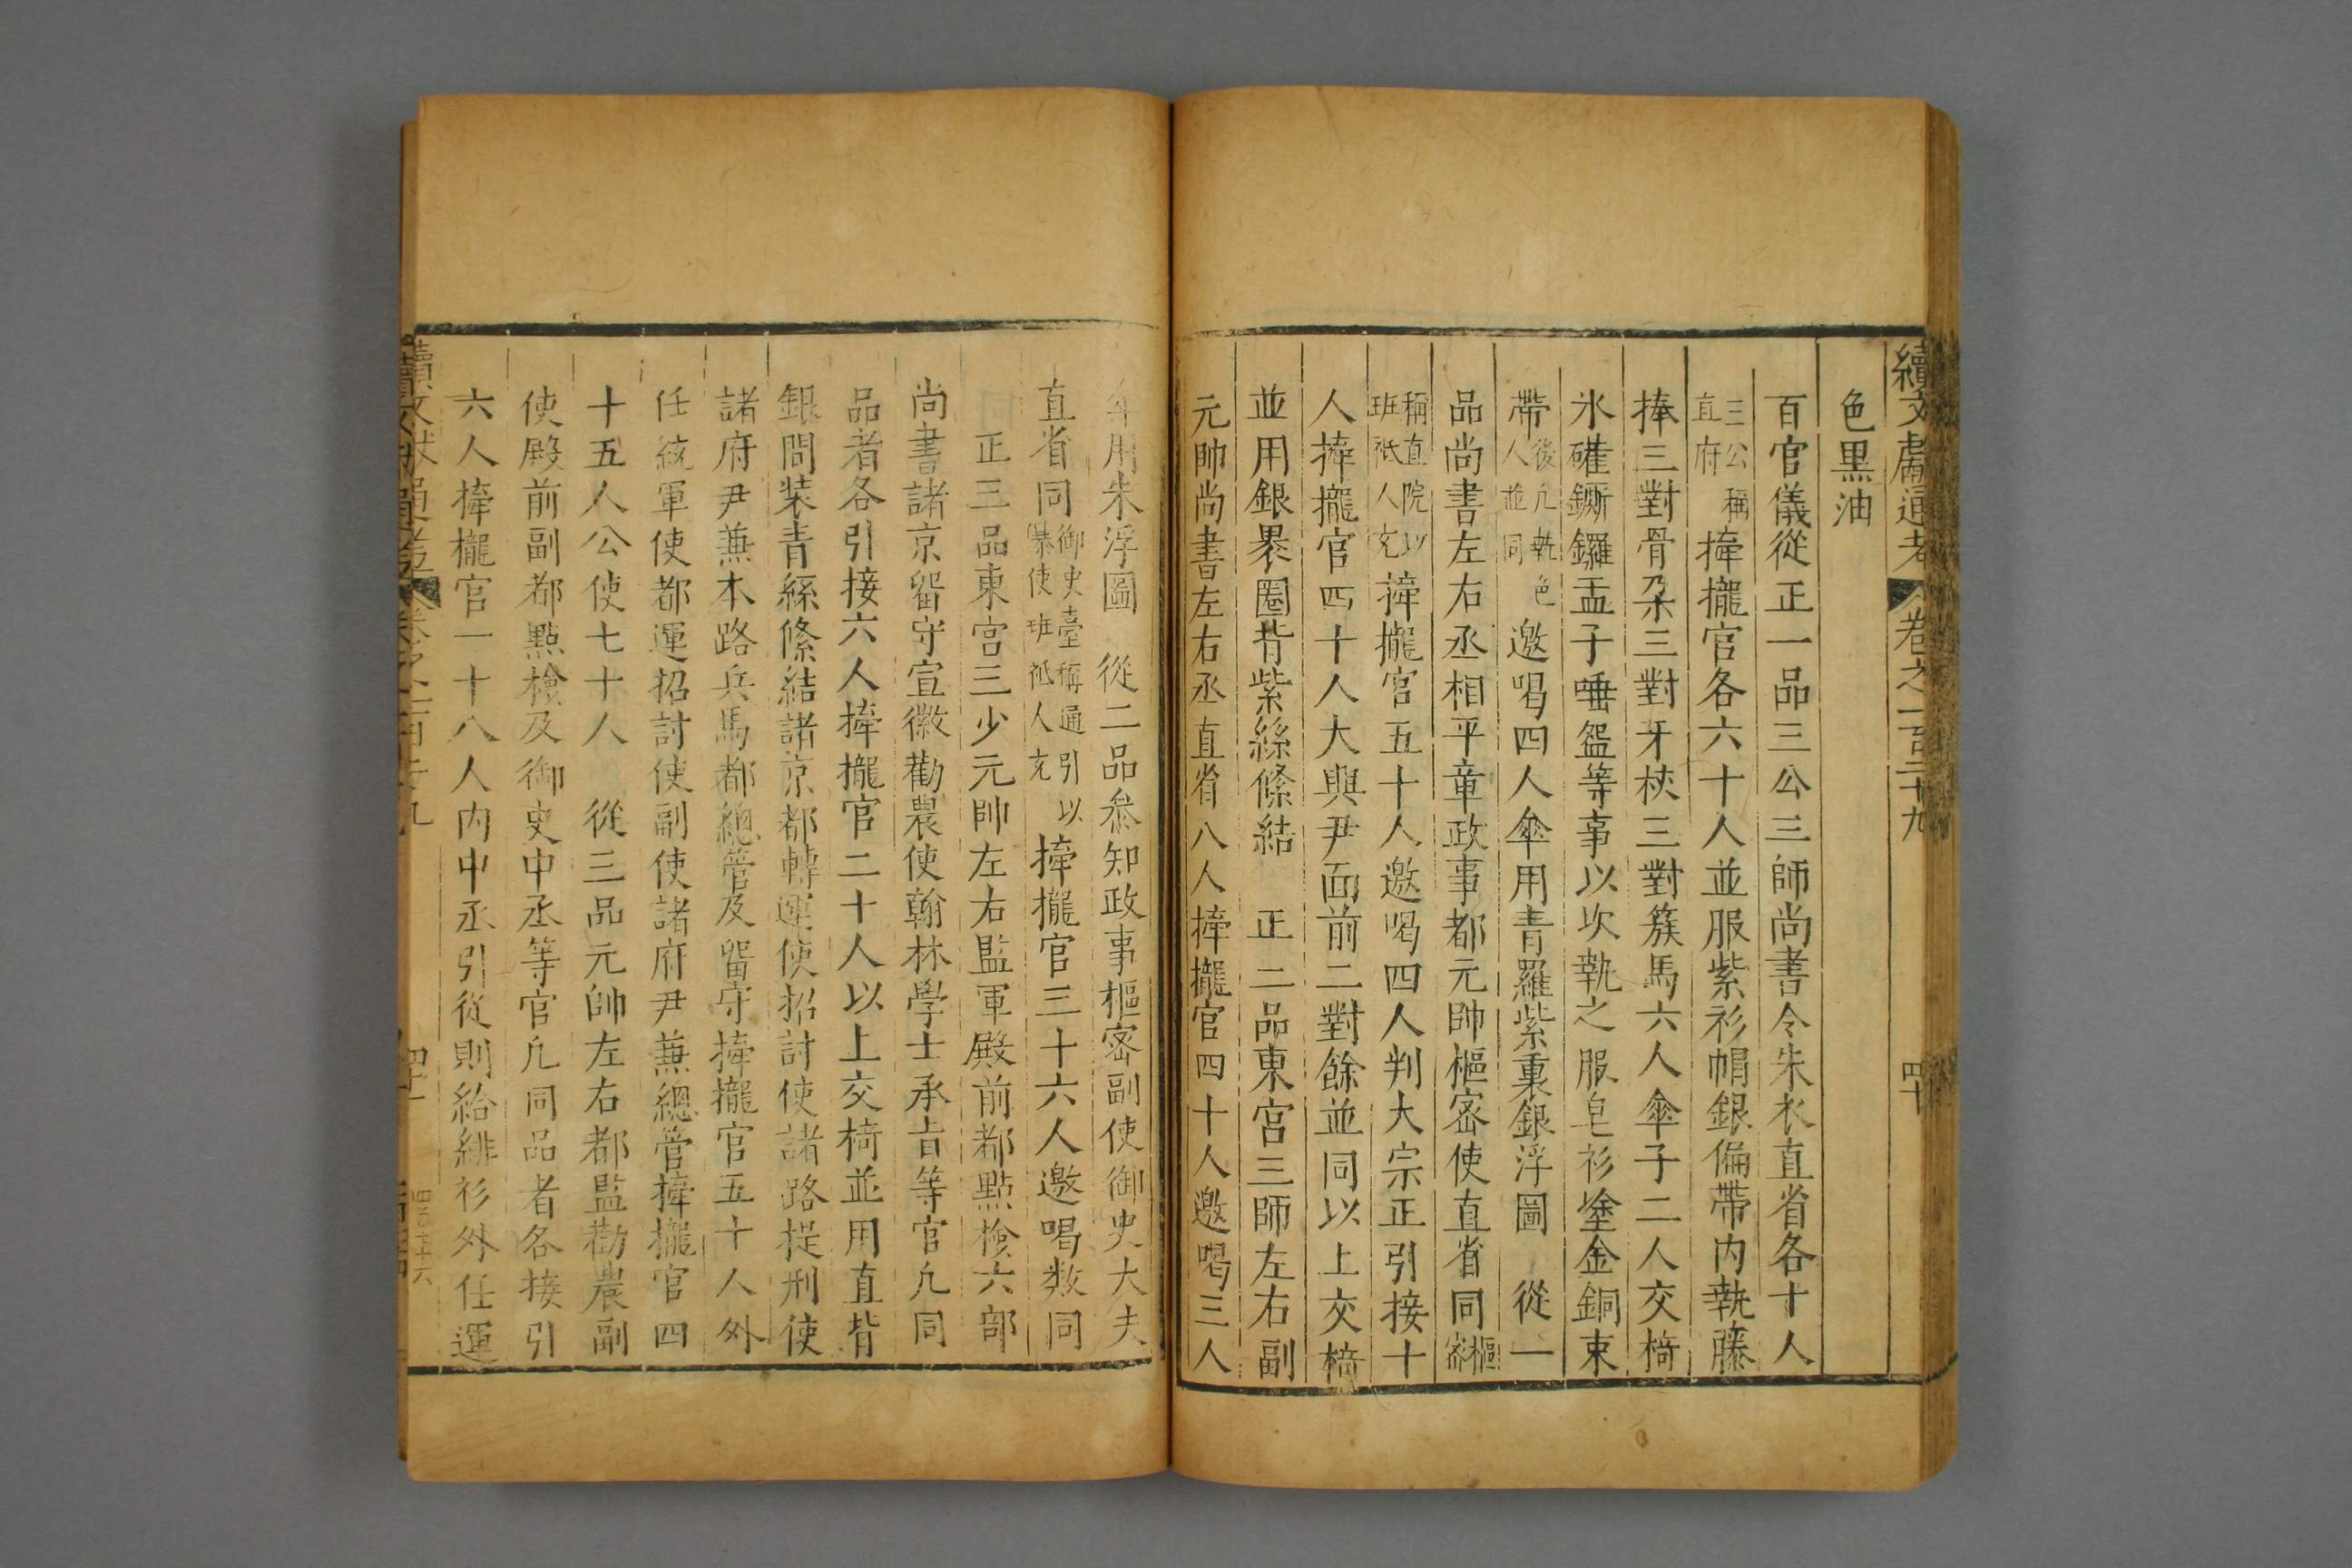 續文獻通考 卷之一百二十九 四十
色黒油
百官儀從正一品三公三師尚書令朱衣直省各十人
三公稱直府捧攏官各六十人並服紫衫帽銀偏帶内執藤
捧三對骨朶三對牙杖三對簇馬六人傘子二人交椅
水礶鐁鑼盂子唾盌等事以次執之服皂衫塗金銅束
帶後凢執色人並同邀喝四人傘用青羅紫裏銀浮圖 從一
品尚書左右丞相平章政事都元帥樞宻使直省同樞宻
稱直院以班祗人充捧攏官五十人邀喝四人判大宗正引接十
人捧攏官四十人大興尹面前二對餘並同以上交椅
並用銀褁圈背紫絲絛結 正二品東宫三師左右副
元帥尚書左右丞直省八人捧攏官四十人邀喝三人
傘用朱浮圖 從二品叅知政事樞宻副使御史大夫
直省同御史臺稱通引以班祗人充捧攏官三十六人邀喝数同
正三品東宫三少元帥左右監軍殿前都點檢六部
尚書諸京留守宣徽勸農使翰林學士承旨等官凢同
品者各引接六人捧攏官二十人以上交椅並用直背
銀間装青絲絛結諸京都轉運使招討使諸路提刑使
諸府尹兼本路兵馬都總管及留守捧攏官五十人外
任統軍使都運招討使副使諸府尹兼總管捧攏官四
十五人公使七十人 從三品元帥左右都監勸農副
使殿前副都點檢及御史中丞等官凢同品者各接引
六人捧攏官一十八人内中丞引從則給緋衫外任運